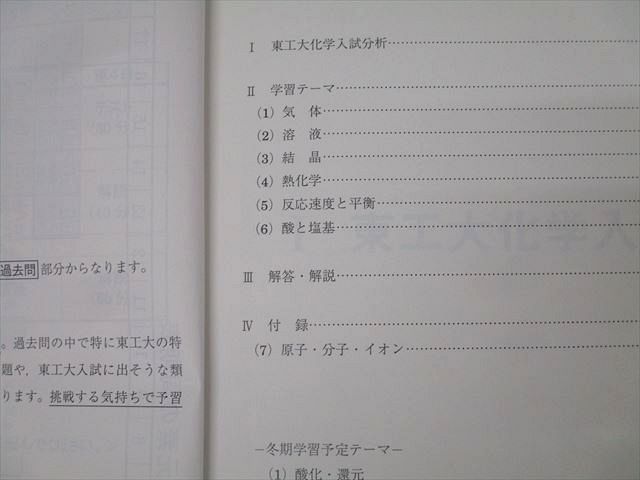 過去問 部分からなります。
。過去問の中で特に東工大の特
題や，東工大入試に出そうな類
ります。挑戦する気持ちで予習
Ⅰ 東工大化学入試分析
Ⅱ 学習テーマ
(1) 気 体
(2) 溶 液
(3) 結 晶
(4) 熱化学
(5) 反応速度と平衡
(6) 酸と塩基
Ⅲ 解答・解説
Ⅳ 付 録
(7) 原子・分子・イオン
−冬期学習予定テーマ−
(1) 酸化・還元